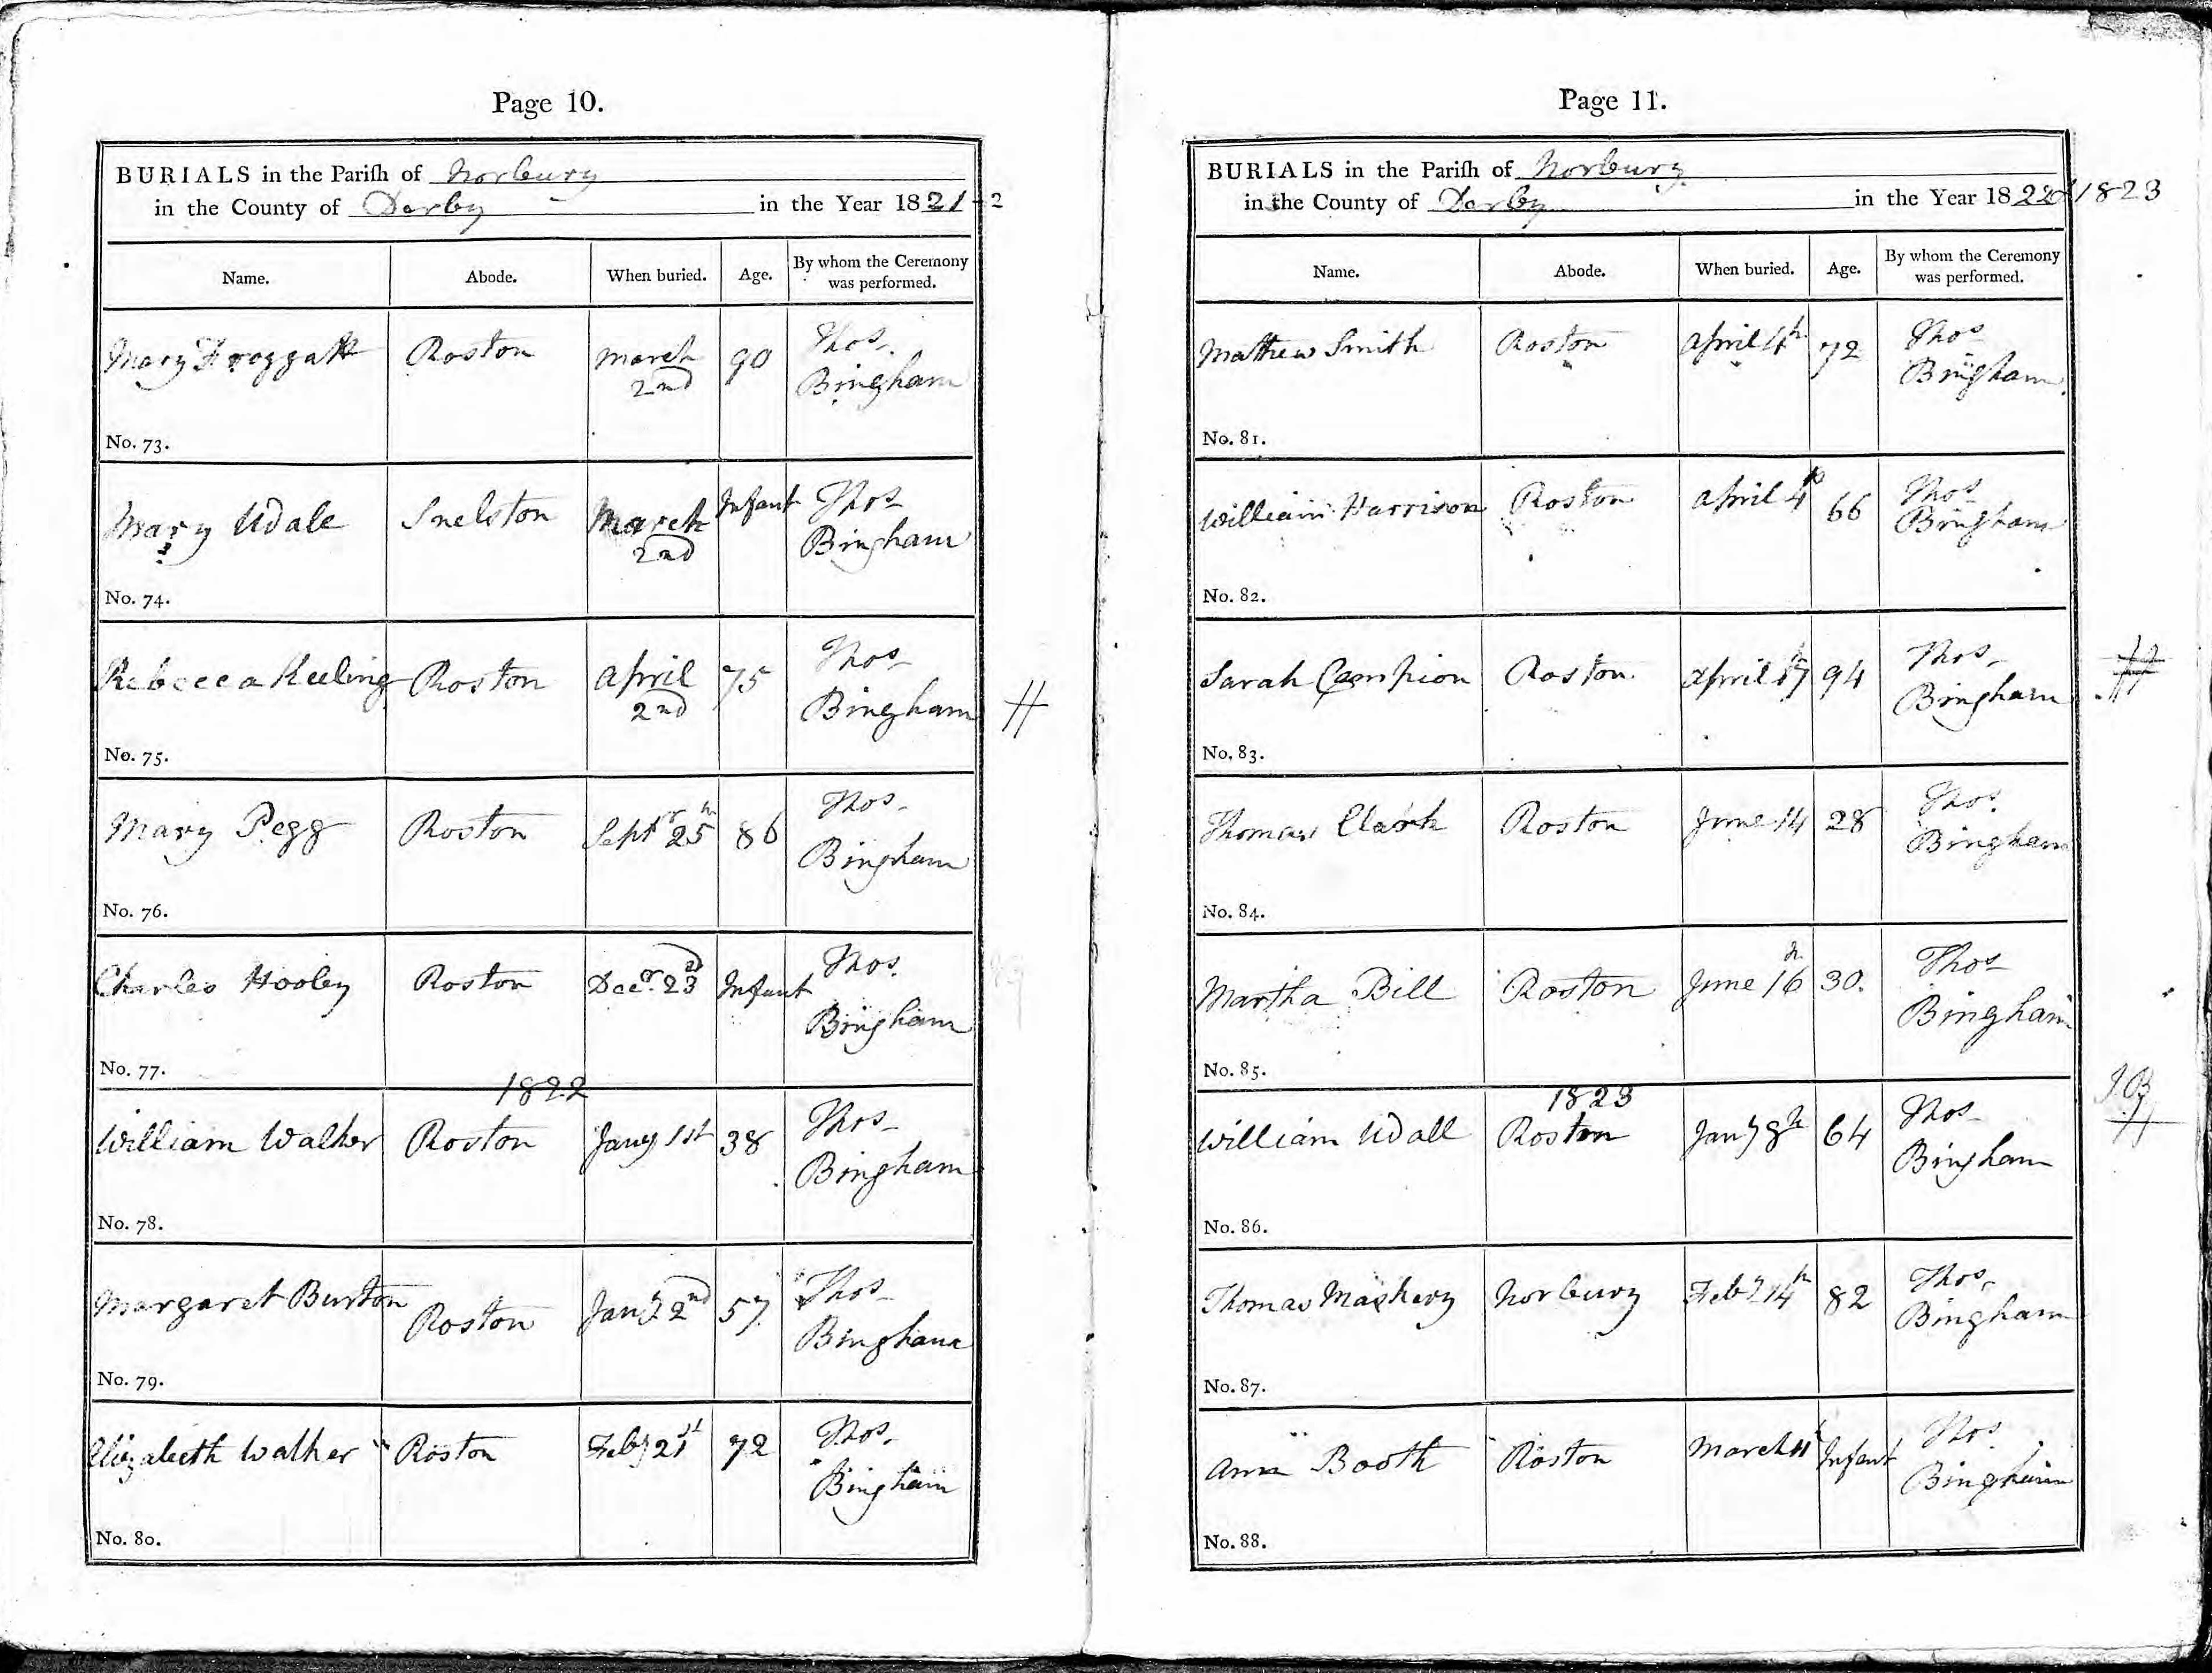 Page 10.
BURIALS in the Parish of Norbury
in the County of Derby in the Year 1821+2
Name. Abode. When buried. Age. By whom the Ceremony was performed.
Mary Froggatt Roston March 2nd 90 Thos. Bingham
No. 73.
Mary Udale Snelston March 2nd Infant Thos Bingham
No. 74.
Rebecca Keeling Roston April 2nd 75 Thos Bingham
No. 75.
Mary Pegg Roston Septr 25th 86 Thos Bingham
No. 76.
Charles Hooley Roston Decr. 23d Infant Thos. Bingham
No. 77.
1822
William Walker Roston Jany 1st 38 Thos Bingham
No. 78.
Margaret Burton Roston Jany 2nd 57 Thos Bingham
No. 79.
Elizabeth Walker Roston Feby 21st 72 Thos. Bingham
No. 80.
Page 11.
BURIALS in the Parish of Norbury
in the County of Derby in the Year 1822 & 1823
Name. Abode. When buried. Age. By whom the Ceremony was performed.
Mathew Smith Roston April 4th 72 Thos Bingham
No. 81.
William Harrison Roston April 4th 66 Thos Bingham
No. 82.
Sarah Campion Roston April 94 Thos Bingham
No. 83.
Thomas Clark Roston June 14 28 Thos. Bingham
No. 84.
Martha Bill Roston June 16th 30. Thos Bingham
No. 85.
1823
William Udall Roston Jany 8th 64 Thos Bingham
No. 86.
Thomas Maskery Norbury Feby 14th 82 Thos. Bingham
No. 87.
Ann Booth Roston March 11 Infant Thos Bingham
No. 88.